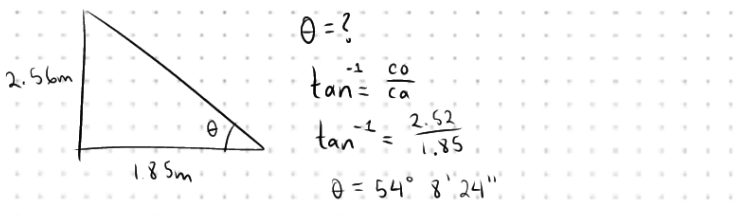 θ = ?
2.56m
tan⁻¹ = co/ca
θ
tan⁻¹ = 2.52/1.85
1.85m
θ = 54° 8' 24"